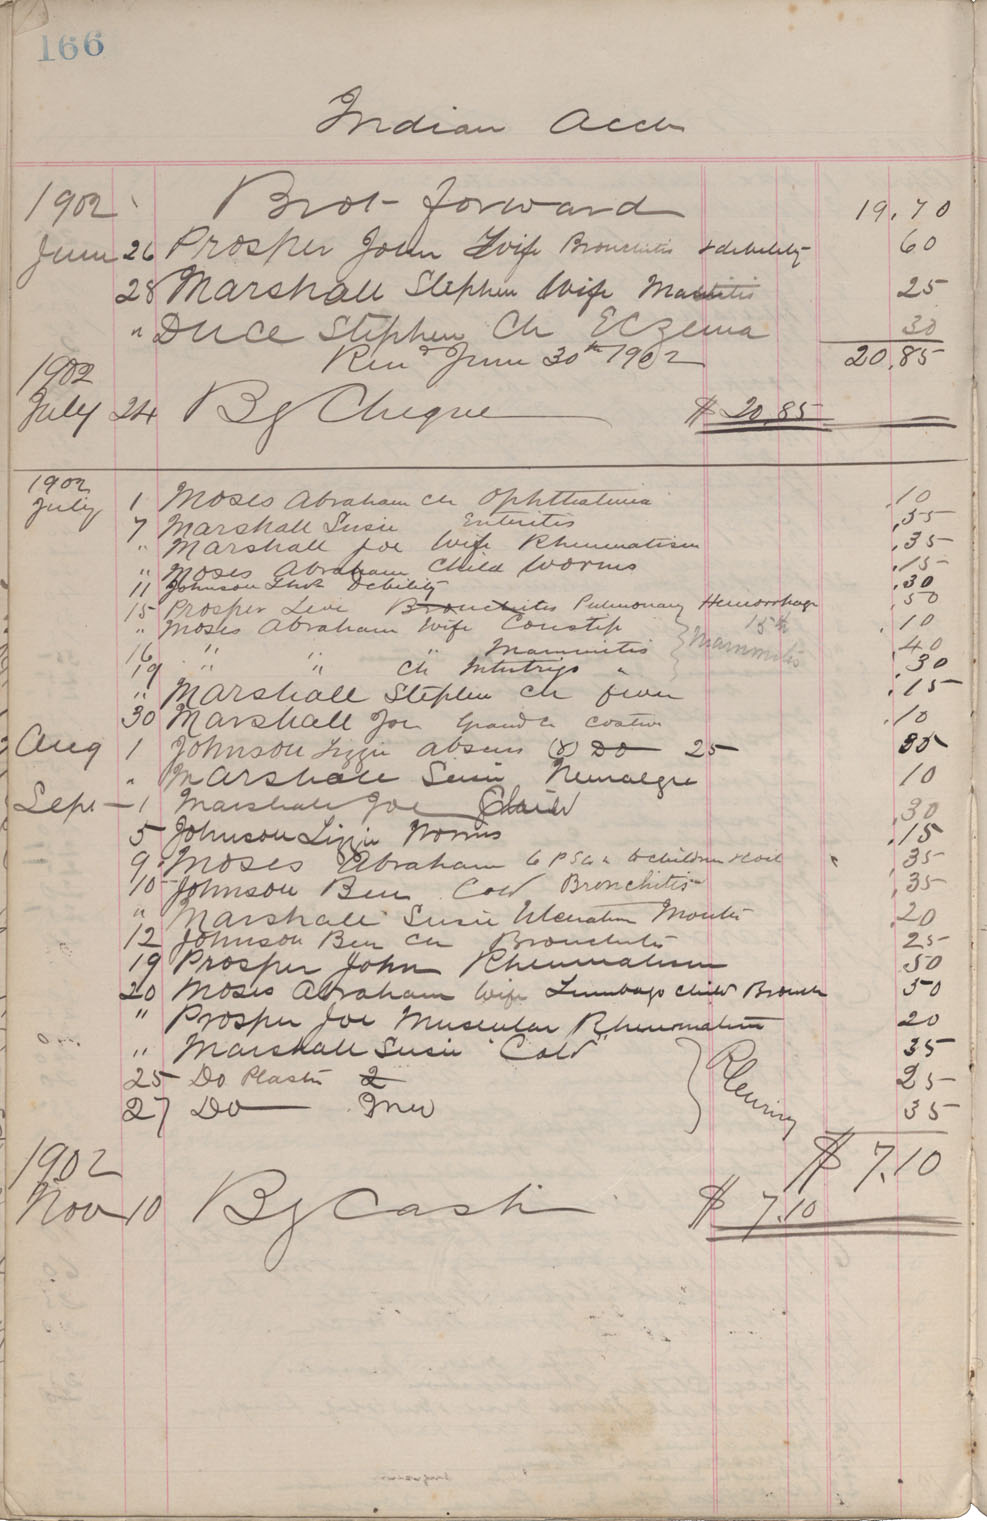 166
Indian Acct
1902 Brot forward 19.70
June 26 Prosper John Wife Bronchitis & debility 60
28 Marshall Stephen Wife 25
" Duce Stephen Ch Eczema 30
Ren^d June 30th 1902 20.85
1902
July 24 By Cheque $ 20.85
1902
July 1 Moses Abraham Ch Ophthalmia .10
7 Marshall Susie Enteritis .35
" Marshall Joe Wife Rheumatism .35
" Moses Abraham Child Worms .15
11 Johnson Debility .30
15 Prosper Levi Bronchitis Pulmonary Hemorrhage .50
" Moses Abraham Wife Constip .10
15th Mammitis
16 " " " Mammitis .40
19 " " Ch Intertrigo " .30
" Marshall Stephen Ch fever .15
30 Marshall Joe Grand Ch .10
Aug 1 Johnson Lizzie absess (2) Do 25 35
" Marshall Susie 10
Sept 1 Marshall Joe Child .30
5 Johnson Lizzie Worms .15
9 Moses Abraham 35
10 Johnson Ben Cold Bronchitis .35
" Marshall Susie Ulceration Mouth .20
12 Johnson Ben Ch Bronchitis 25
19 Prosper John Rheumatism .50
20 Moses Abraham Wife Lumbago child Bronch 50
" Prosper Joe Muscular Rheumatism 20
" Marshall Susie "Cold" 35
25 Do Plaster 2 25
27 Do Med 35
Pleurisy
$ 7.10
1902
Nov 10 By Cash $ 7.10